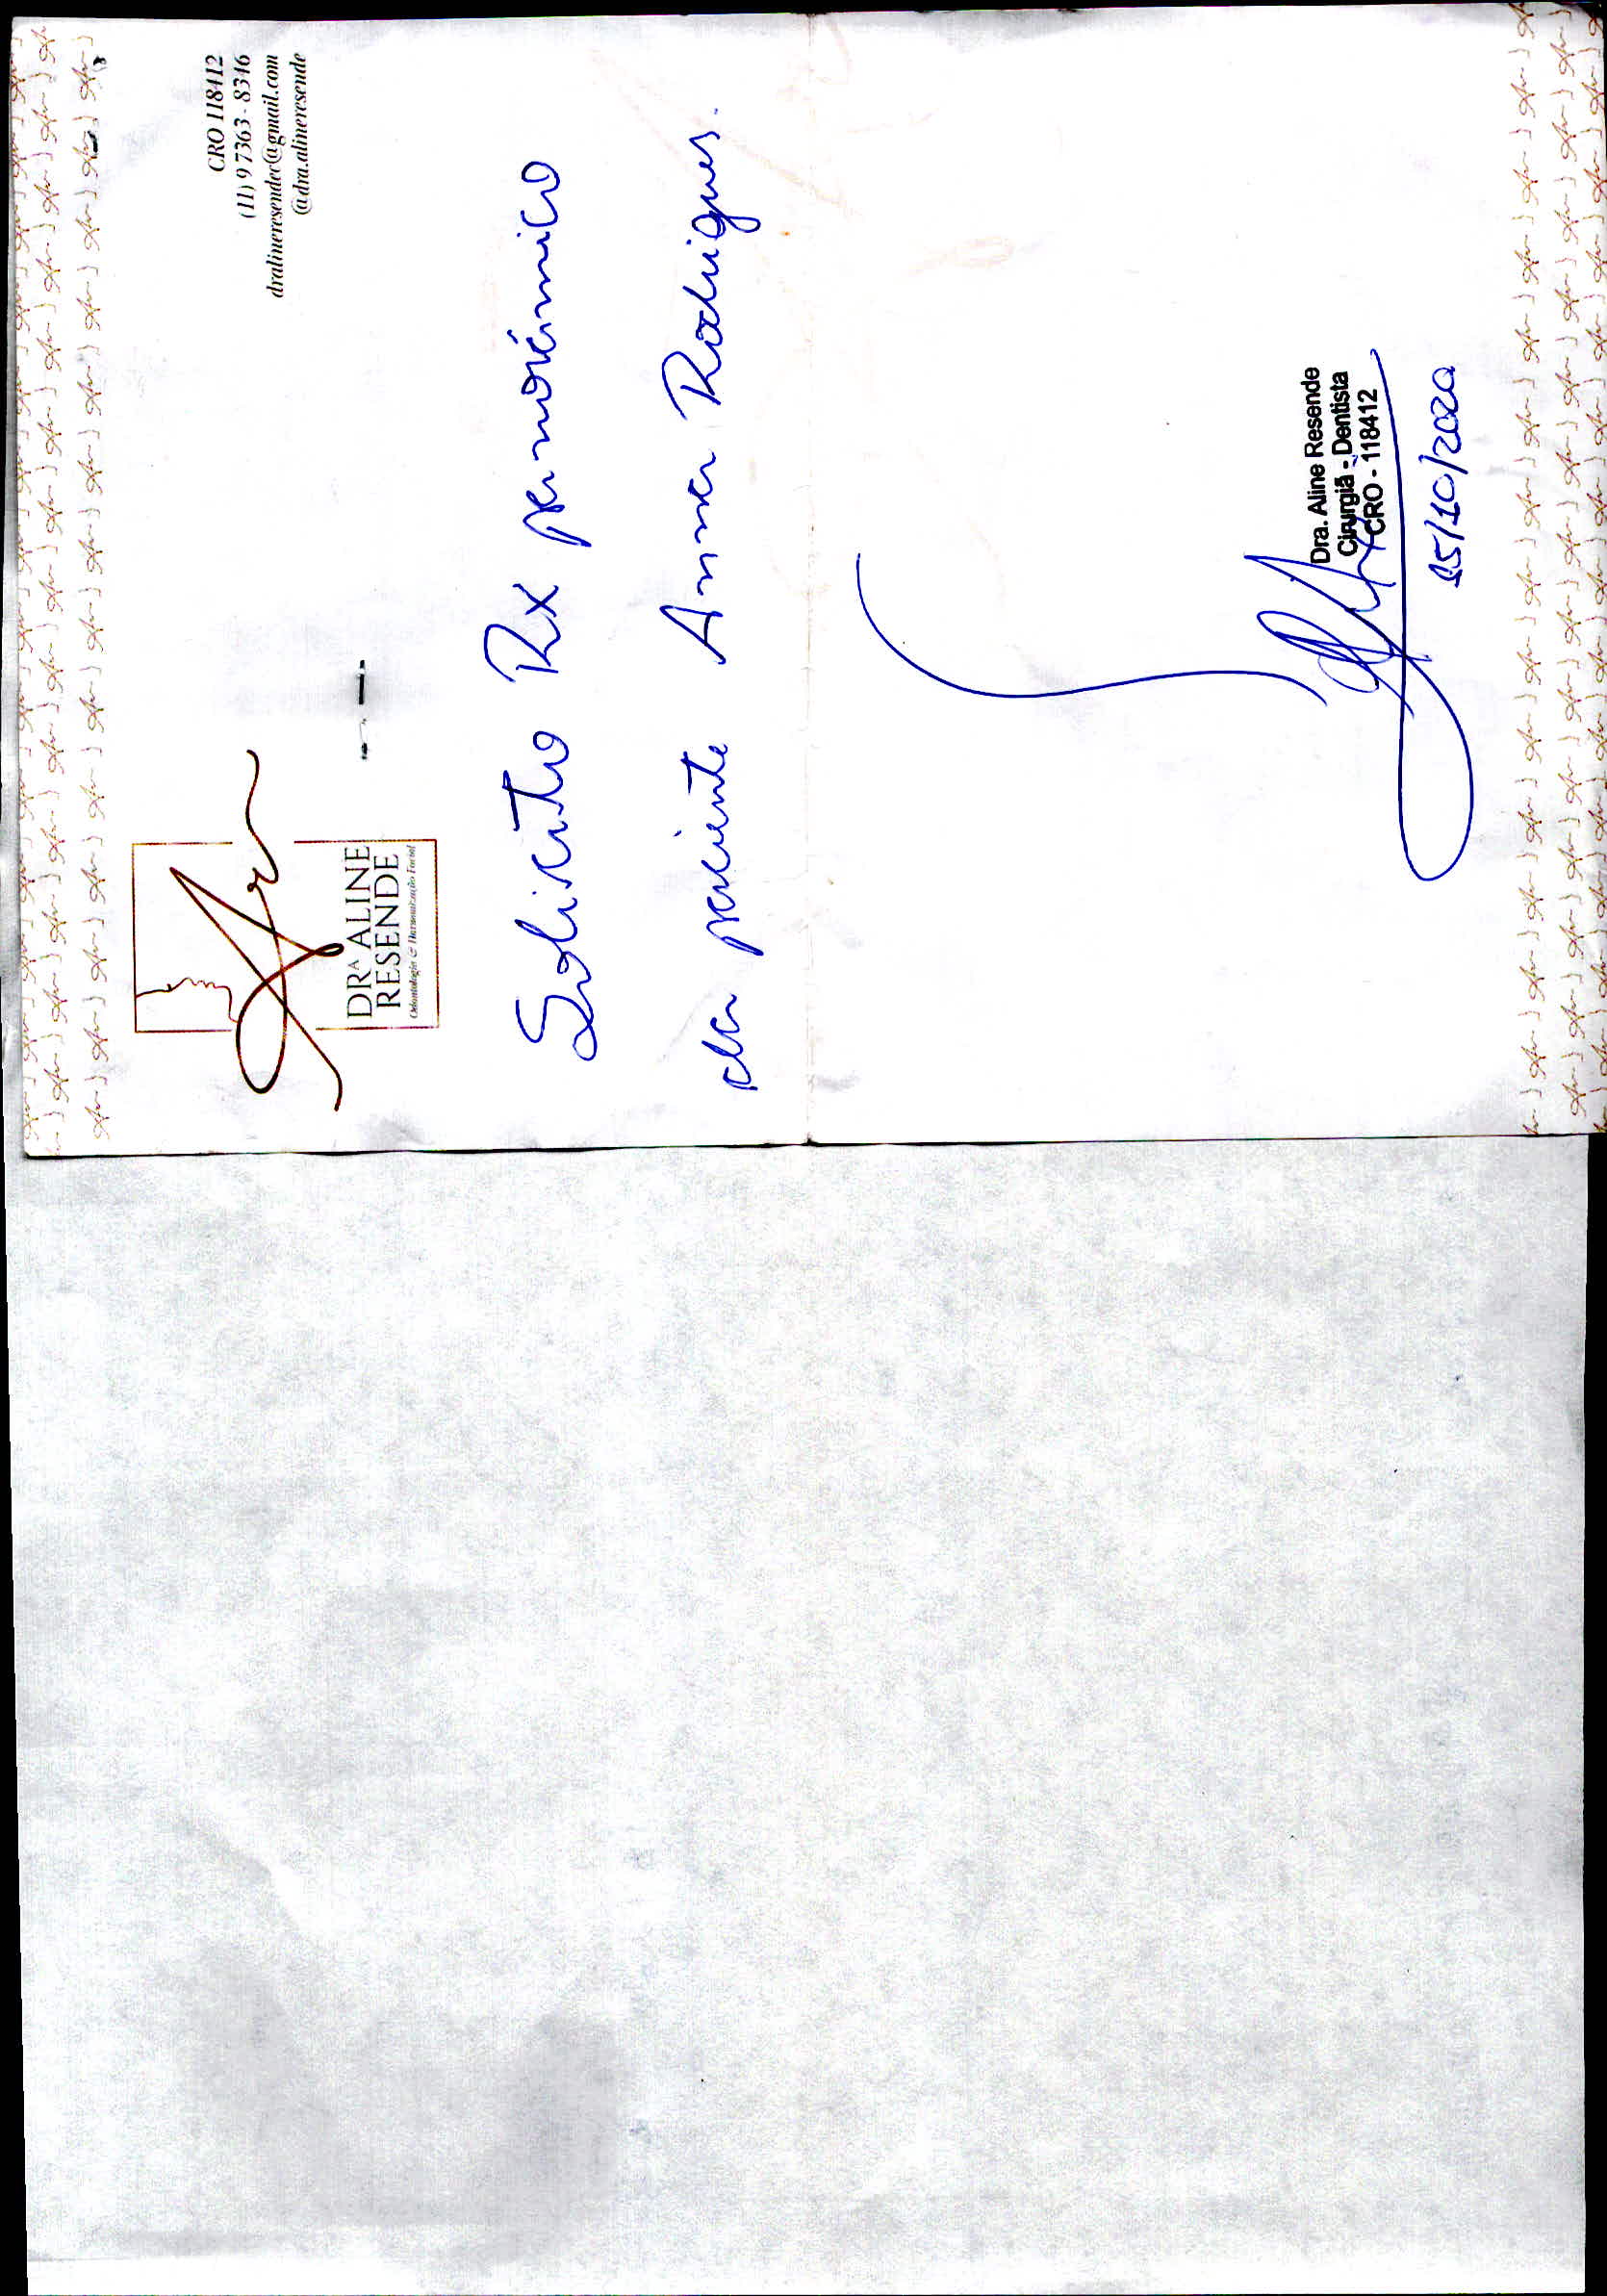 Ar
DRᴬ ALINE
RESENDE
Odontologia & Harmonização Facial
CRO 118412
(11) 9 7363 - 8346
dralineresende@gmail.com
@dra.alineresende
Solicito Rx panorâmico
da paciente Anna Rodrigues.
Dra. Aline Resende
Cirurgiã - Dentista
CRO - 118412
15/10/2020